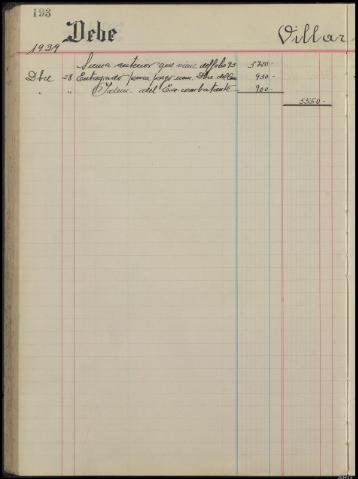 193
Debe Villar
1939
Suma anterior que viene del folio 95 3700-
Dbre 28 Entregado para pago nom. Dbre del 950-
" " Idem del Excombatiente 900-
5550-